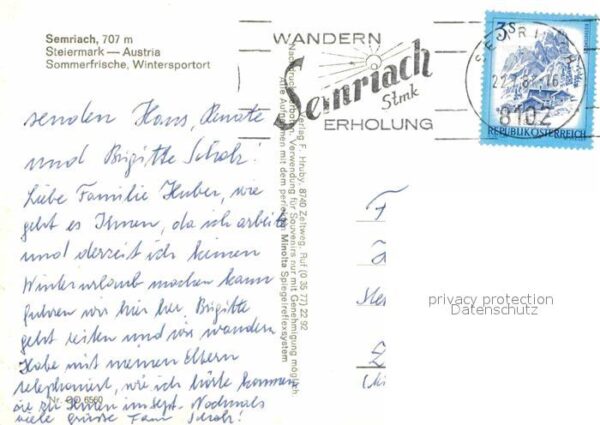 Semriach, 707 m
Steiermark — Austria
Sommerfrische, Wintersportort
WANDERN
Semriach
Stmk
ERHOLUNG
3 S
SEMRIACH
8102
REPUBLIK ÖSTERREICH
senden Hans, Renate
und Brigitte Scholz!
Liebe Familie Huber, wie
geht es Ihnen, da ich arbeite
und derzeit ich keinen
Winterurlaub machen kann
fuhren wir hier her. Brigitte
geht reiten und wir wandern
Habe mit meinen Eltern
telephoniert, wie ich hörte kommen
sie zu Ihnen im Sept. Nochmals
viele Grüsse Fam. Scholz!
Nr. CO 6560
Verlag F. Hruby, 8740 Zeltweg, Ruf (0 35 77) 22 92
Verwendung für Souvenirs nur mit Genehmigung möglich
Alle Aufnahmen mit dem perfekten Minolta Spiegelreflexsystem
privacy protection
Datenschutz